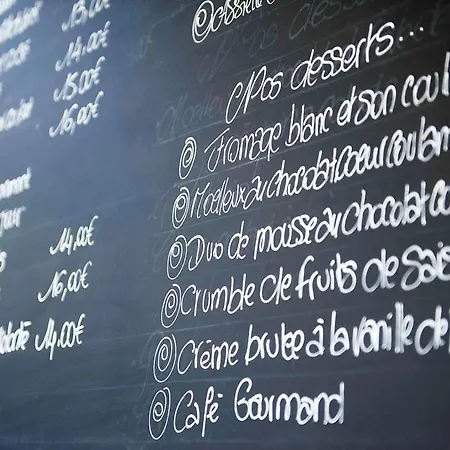 13.00
14.00€
15.00€
16.00€
14.00€
16.00€
14.00€
Nos desserts...
Fromage blanc et son coul
Moelleux au chocolat coeur coulan
Duo de mousse au chocolat co
Crumble de fruits de sais
Crème brulee à la vanille de
Café Gourmand